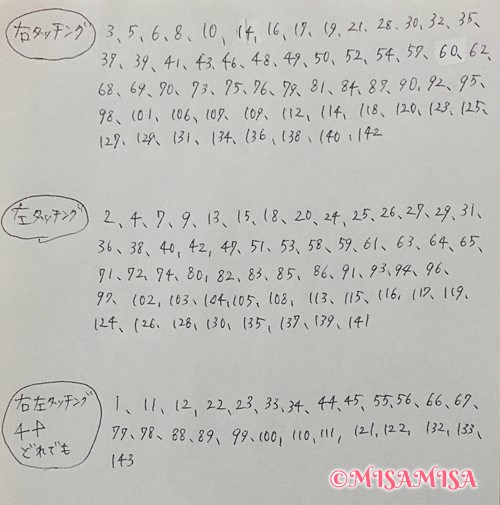 右タッチング
3、5、6、8、10、14、16、17、19、21、28、30、32、35、
37、39、41、43、46、48、49、50、52、54、57、60、62、
68、69、70、73、75、76、79、81、84、87、90、92、95、
98、101、106、107、109、112、114、118、120、123、125、
127、129、131、134、136、138、140、142
左タッチング
2、4、7、9、13、15、18、20、24、25、26、27、29、31、
36、38、40、42、47、51、53、58、59、61、63、64、65、
71、72、74、80、82、83、85、86、91、93、94、96、
97、102、103、104、105、108、113、115、116、117、119、
124、126、128、130、135、137、139、141
右左タッチング
どれでも
1、11、12、22、23、33、34、44、45、55、56、66、67、
77、78、88、89、99、100、110、111、121、122、132、133、
143
©MISAMISA